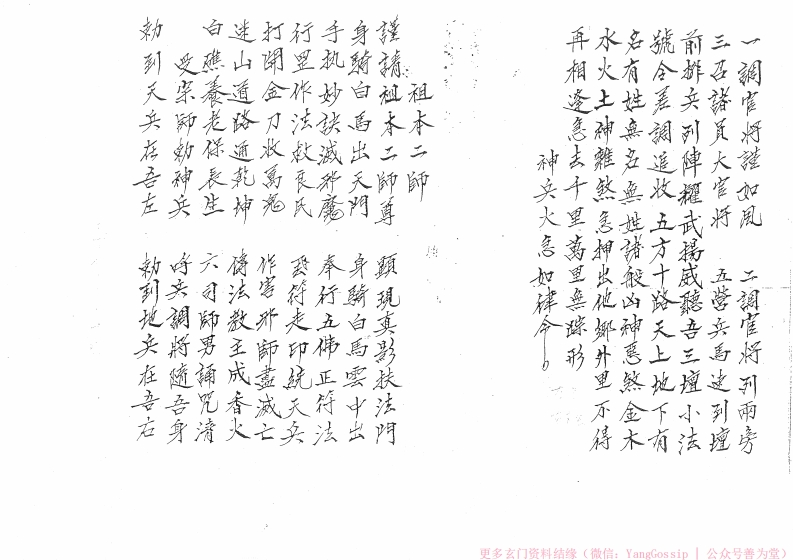 一調官將謹如風　二調官將列兩旁
三召諸員大官將　五營兵馬速到壇
前排兵列陣耀武揚威聽吾三壇小法
號令差調追收五方十路天上地下有
名有姓無名無姓諸般山神惡煞金木
水火土神雜煞急押出他鄉外里不得
再相逢急去千里萬里無踪形
神兵火急如律令
祖本二師
謹請祖本二師尊　顯現真影扶法門
身騎白馬出天門　身騎白馬雲中出
手执妙訣滅邪魔　奉行五佛正符法
行罡作法救良民　發符走印統天兵
打開金刀收萬鬼　作害邪師盡滅亡
迷山道路通乾坤　傳法教主成香火
白礁養老保長生　六司師男誦咒清
受宗師勅神兵　呼兵調將隨吾身
勅到天兵在吾左　勅到地兵在吾右
更多玄门资料结缘（微信：YangGossip | 公众号善为堂）